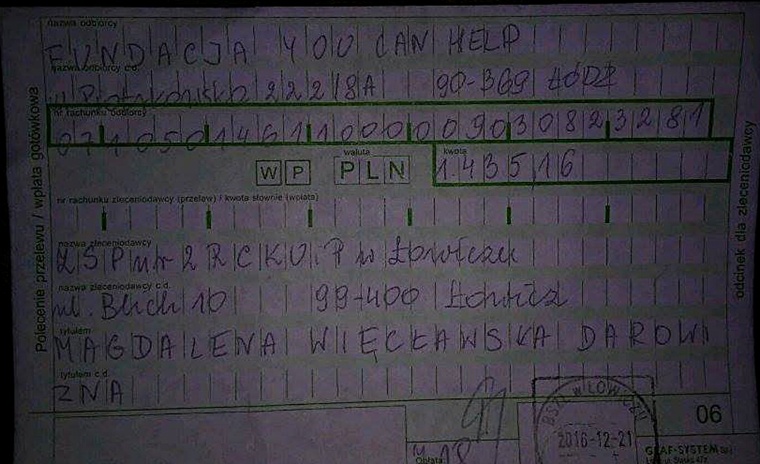 nazwa odbiorcy
FUNDACJA YOU CAN HELP
nazwa odbiorcy c.d.
ul. Piotrkowska 222/8A 90-369 ŁÓDŹ
nr rachunku odbiorcy
07 1050 1461 1000 0090 3082 3281
waluta kwota
WP PLN 1435,16
nr rachunku zleceniodawcy (przelew) / kwota słownie (wpłata)
nazwa zleceniodawcy
ZSP nr 2 RCKUiP w Łowiczu
nazwa zleceniodawcy c.d.
ul. Blich 10 99-400 Łowicz
tytułem
MAGDALENA WIĘCŁAWSKA DAROWI
tytułem c.d.
ZNA
Polecenie przelewu / wpłata gotówkowa
odcinek dla zleceniodawcy
W ŁOWICZU
2016-12-21
06
Opłata:
GRAF-SYSTEM